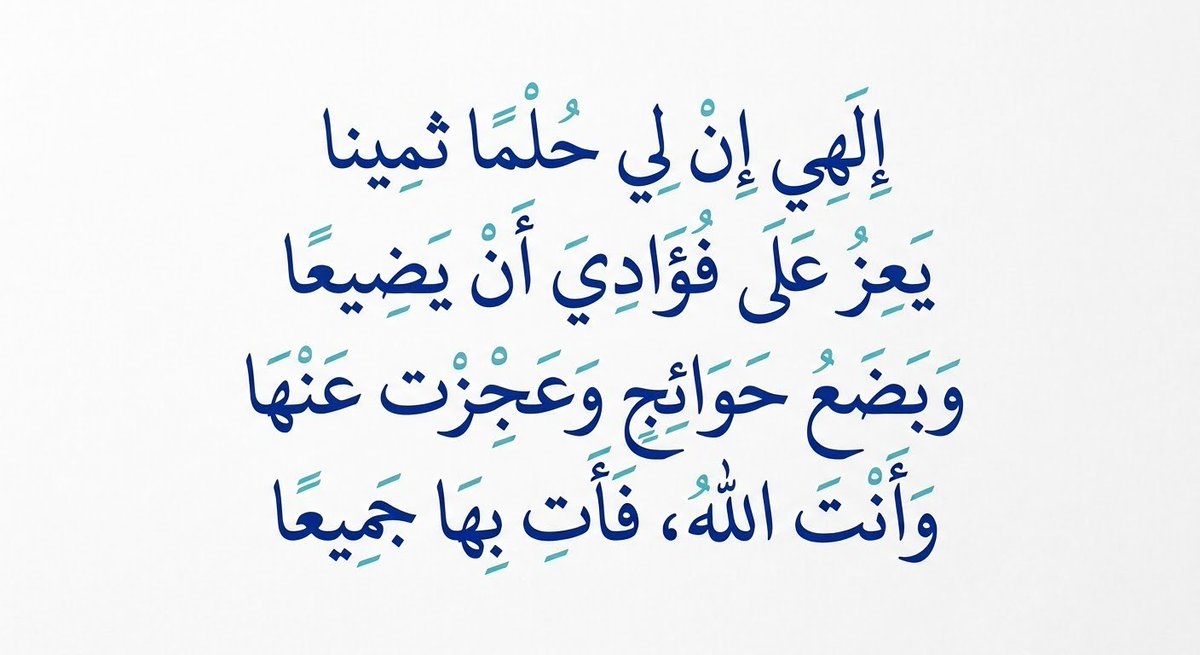 إِلَهِي إِنْ لِي حُلْمًا ثمِينا
يَعِزُ عَلَى فُؤَادِيَ أَنْ يَضِيعًا
وَبَضَعُ حَوَائِجٍ وَعَجِزْت عَنْهَا
وَأَنْتَ اللهُ، فَأَتِ بِهَا جَمِيعًا